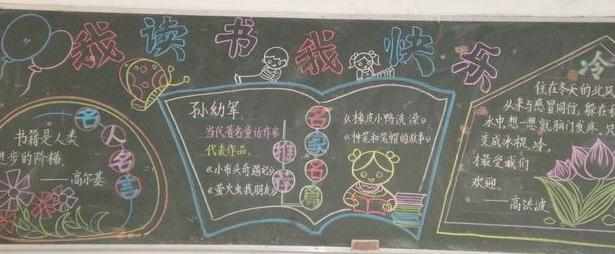 我读书我快乐
名人名言
书籍是人类
进步的阶梯。
——高尔基
孙幼军
当代著名童话作家
代表作品:
《小布头奇遇记》
《萤火虫找朋友》
推荐
名家名篇
《橡皮小鸭洗澡》
的故事》
冷
住在冬天的北风
从来与感冒同行,躲在
水中,想一想就脑门发麻
变成冰棍,冷,
才最受我们
欢迎。
——高洪波